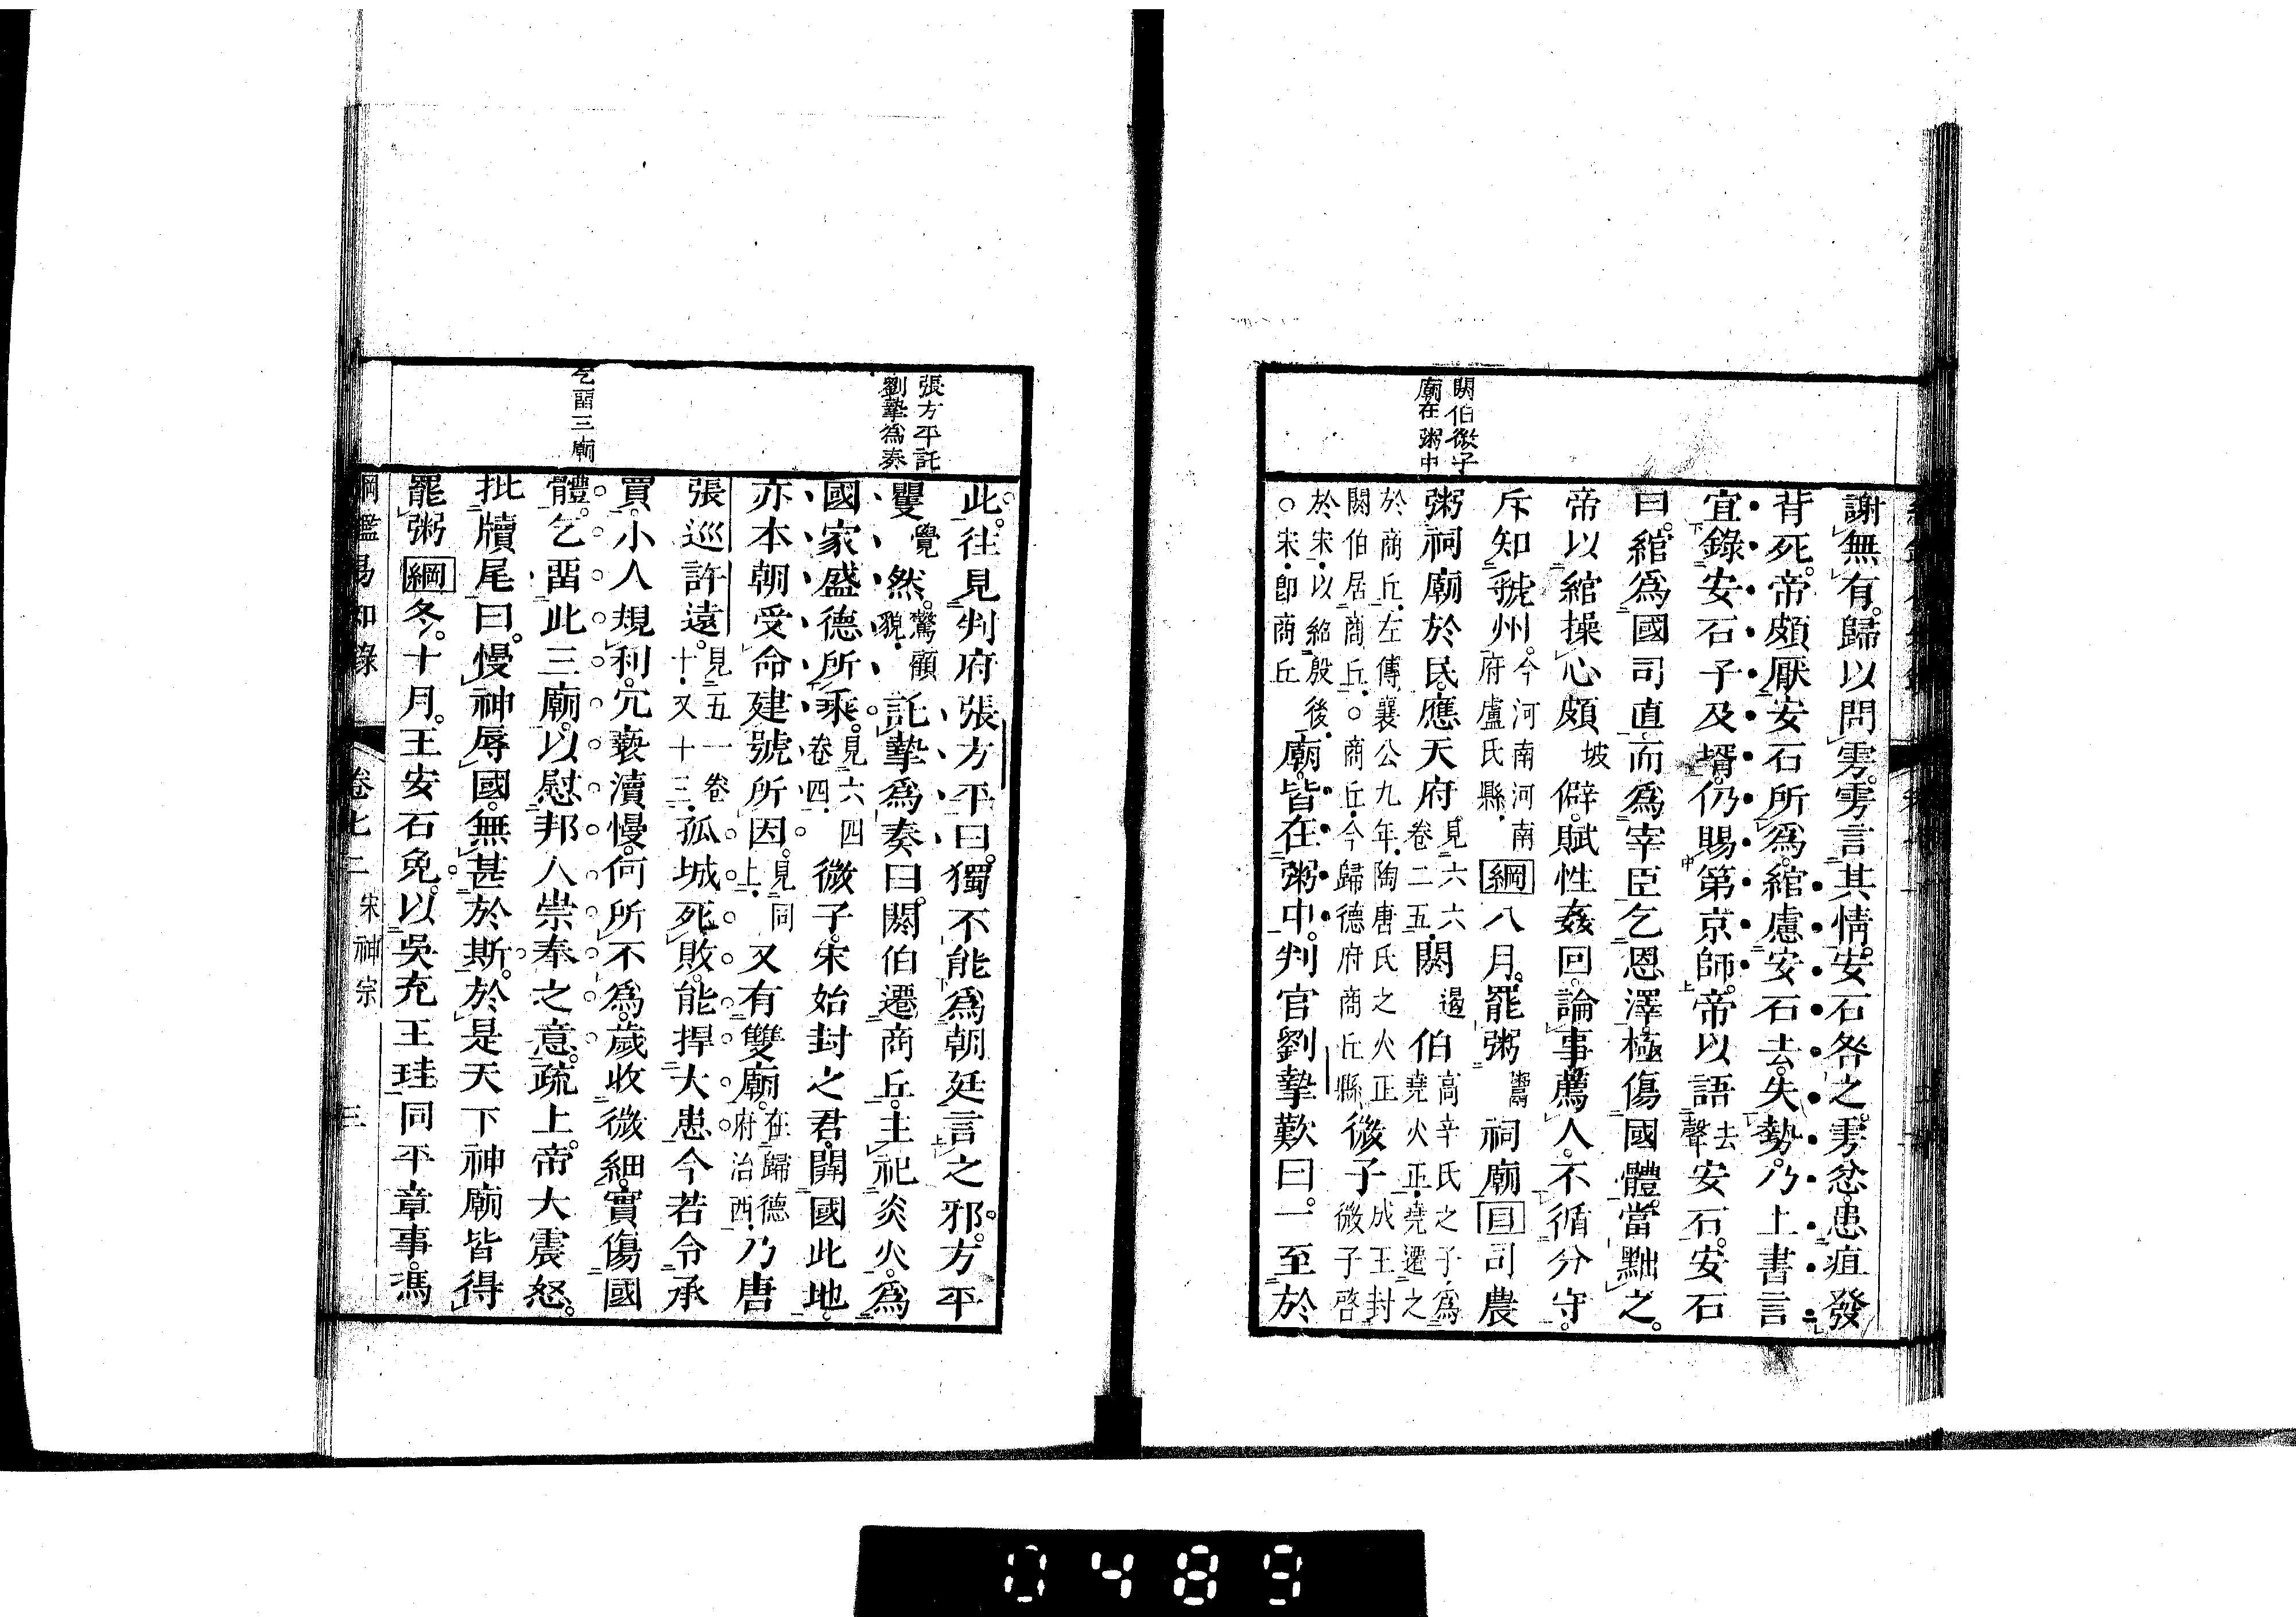 閼伯微子
廟在粥中
謝無有。歸以問雱。雱言其情。安石咎之。雱忿恚疽發
背死。帝頗厭安石所爲。綰慮安石去失勢。乃上書言
宜錄安石子及壻。仍賜第京師。帝以語去聲安石。安石
曰。綰爲國司直。而爲宰臣乞恩澤。極傷國體。當黜之。
帝以綰操心頗坡僻。賦性姦回。論事薦人。不循分守。
斥知虢州。今河南河南府盧氏縣。綱八月。罷粥鬻祠廟目司農
粥祠廟於民。應天府見六六卷二五。閼遏伯高辛氏之子。爲堯火正。堯遷之
於商丘。左傳襄公九年。陶唐氏之火正閼伯居商丘。○商丘。今歸德府商丘縣微子成王封微子啓
於宋。以紹殷後。○宋。卽商丘廟。皆在粥中。判官劉摯歎曰。一至於
張方平託
劉摯爲奏
乞畱三廟
此。往見判府張方平曰。獨不能爲朝廷言之邪。方平
矍覺然。驚顧貌。託摯爲奏曰。閼伯遷商丘。主祀炎火。爲
國家盛德所乘。見六四卷四。微子。宋始封之君。開國此地。
亦本朝受命建號所因。見同上。又有雙廟。在歸德府治西。乃唐
張巡許遠。見五一卷十。又十三。孤城死敗。能捍大患。今若令承
買。小人規利。冗褻瀆慢。何所不爲。歲收微細。實傷國
體。乞畱此三廟。以慰邦人崇奉之意。疏上。帝大震怒。
批牘尾曰。慢神辱國。無甚於斯。於是天下神廟皆得
罷粥綱冬。十月。王安石免。以吳充王珪同平章事。馮
綱鑑易知錄 卷七二 宋神宗 三
0489